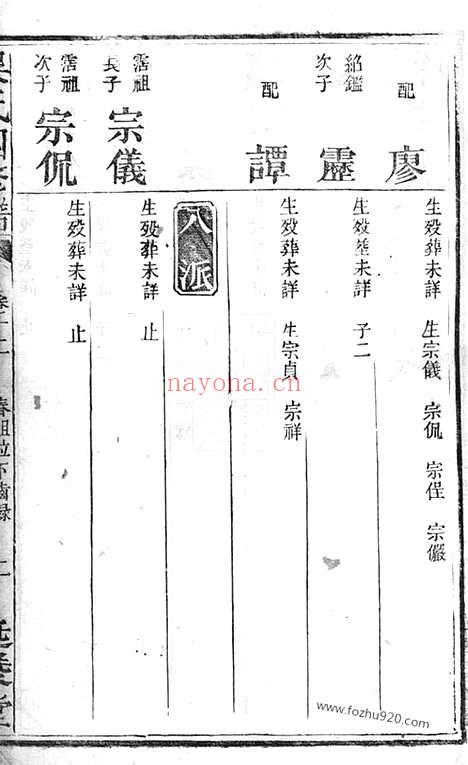 配
廖
生殁葬未詳 生宗儀 宗侃 宗侱 宗儼
紹鑑
次子
靈
生殁塟未詳 子二
配
譚
生殁葬未詳 生宗貞 宗祥
八派
霑祖
長子
宗儀
生殁葬未詳 止
霑祖
次子
宗侃
生殁葬未詳 止
氏四修譜
卷十二
春祖位下齒錄
二
延陵堂
nayona.cn
www.fozhu920.com